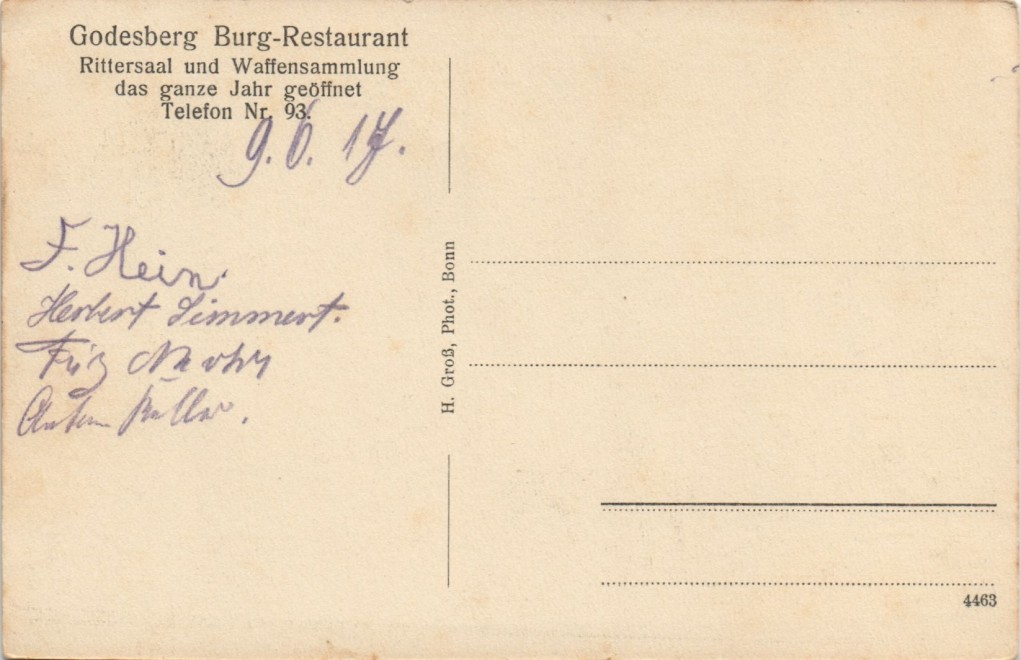 Godesberg Burg-Restaurant
Rittersaal und Waffensammlung
das ganze Jahr geöffnet
Telefon Nr. 93.
9.6.17.
F. Hein.
Herbert Simmert.
Fritz
Anton
H. Groß, Phot., Bonn
4463